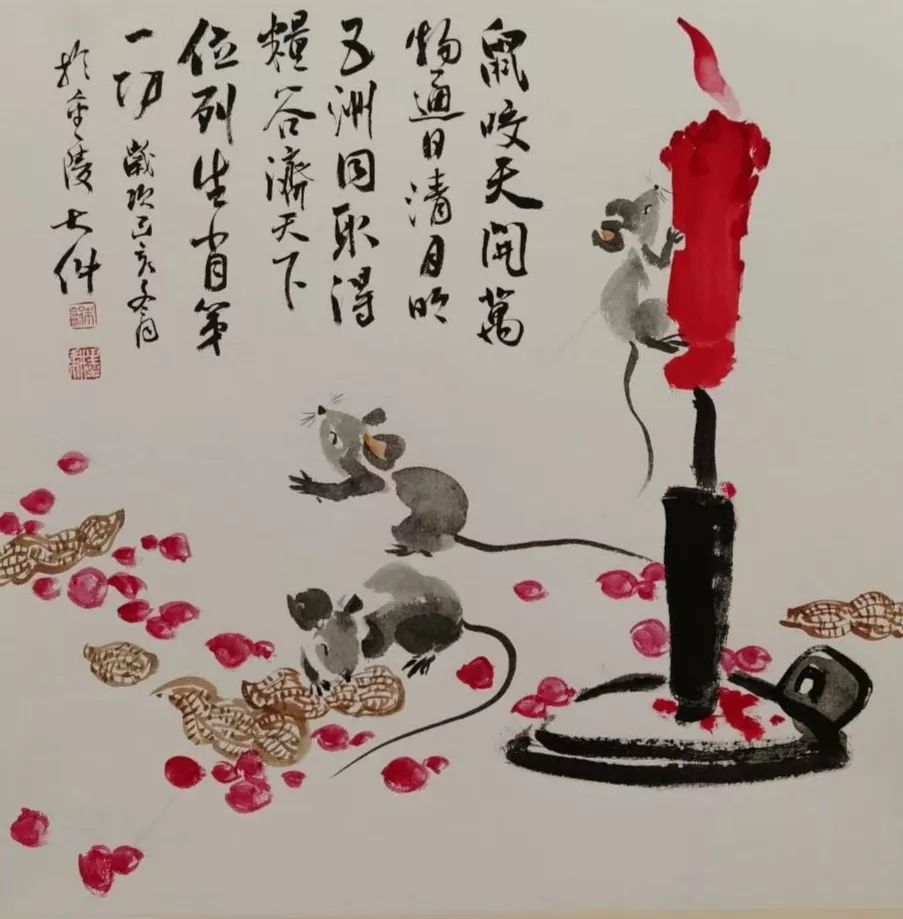 鼠咬天開萬
物通日清月明
五洲同取得
糧谷濟天下
位列生肖第
一功 歲次己亥冬月
於金陵